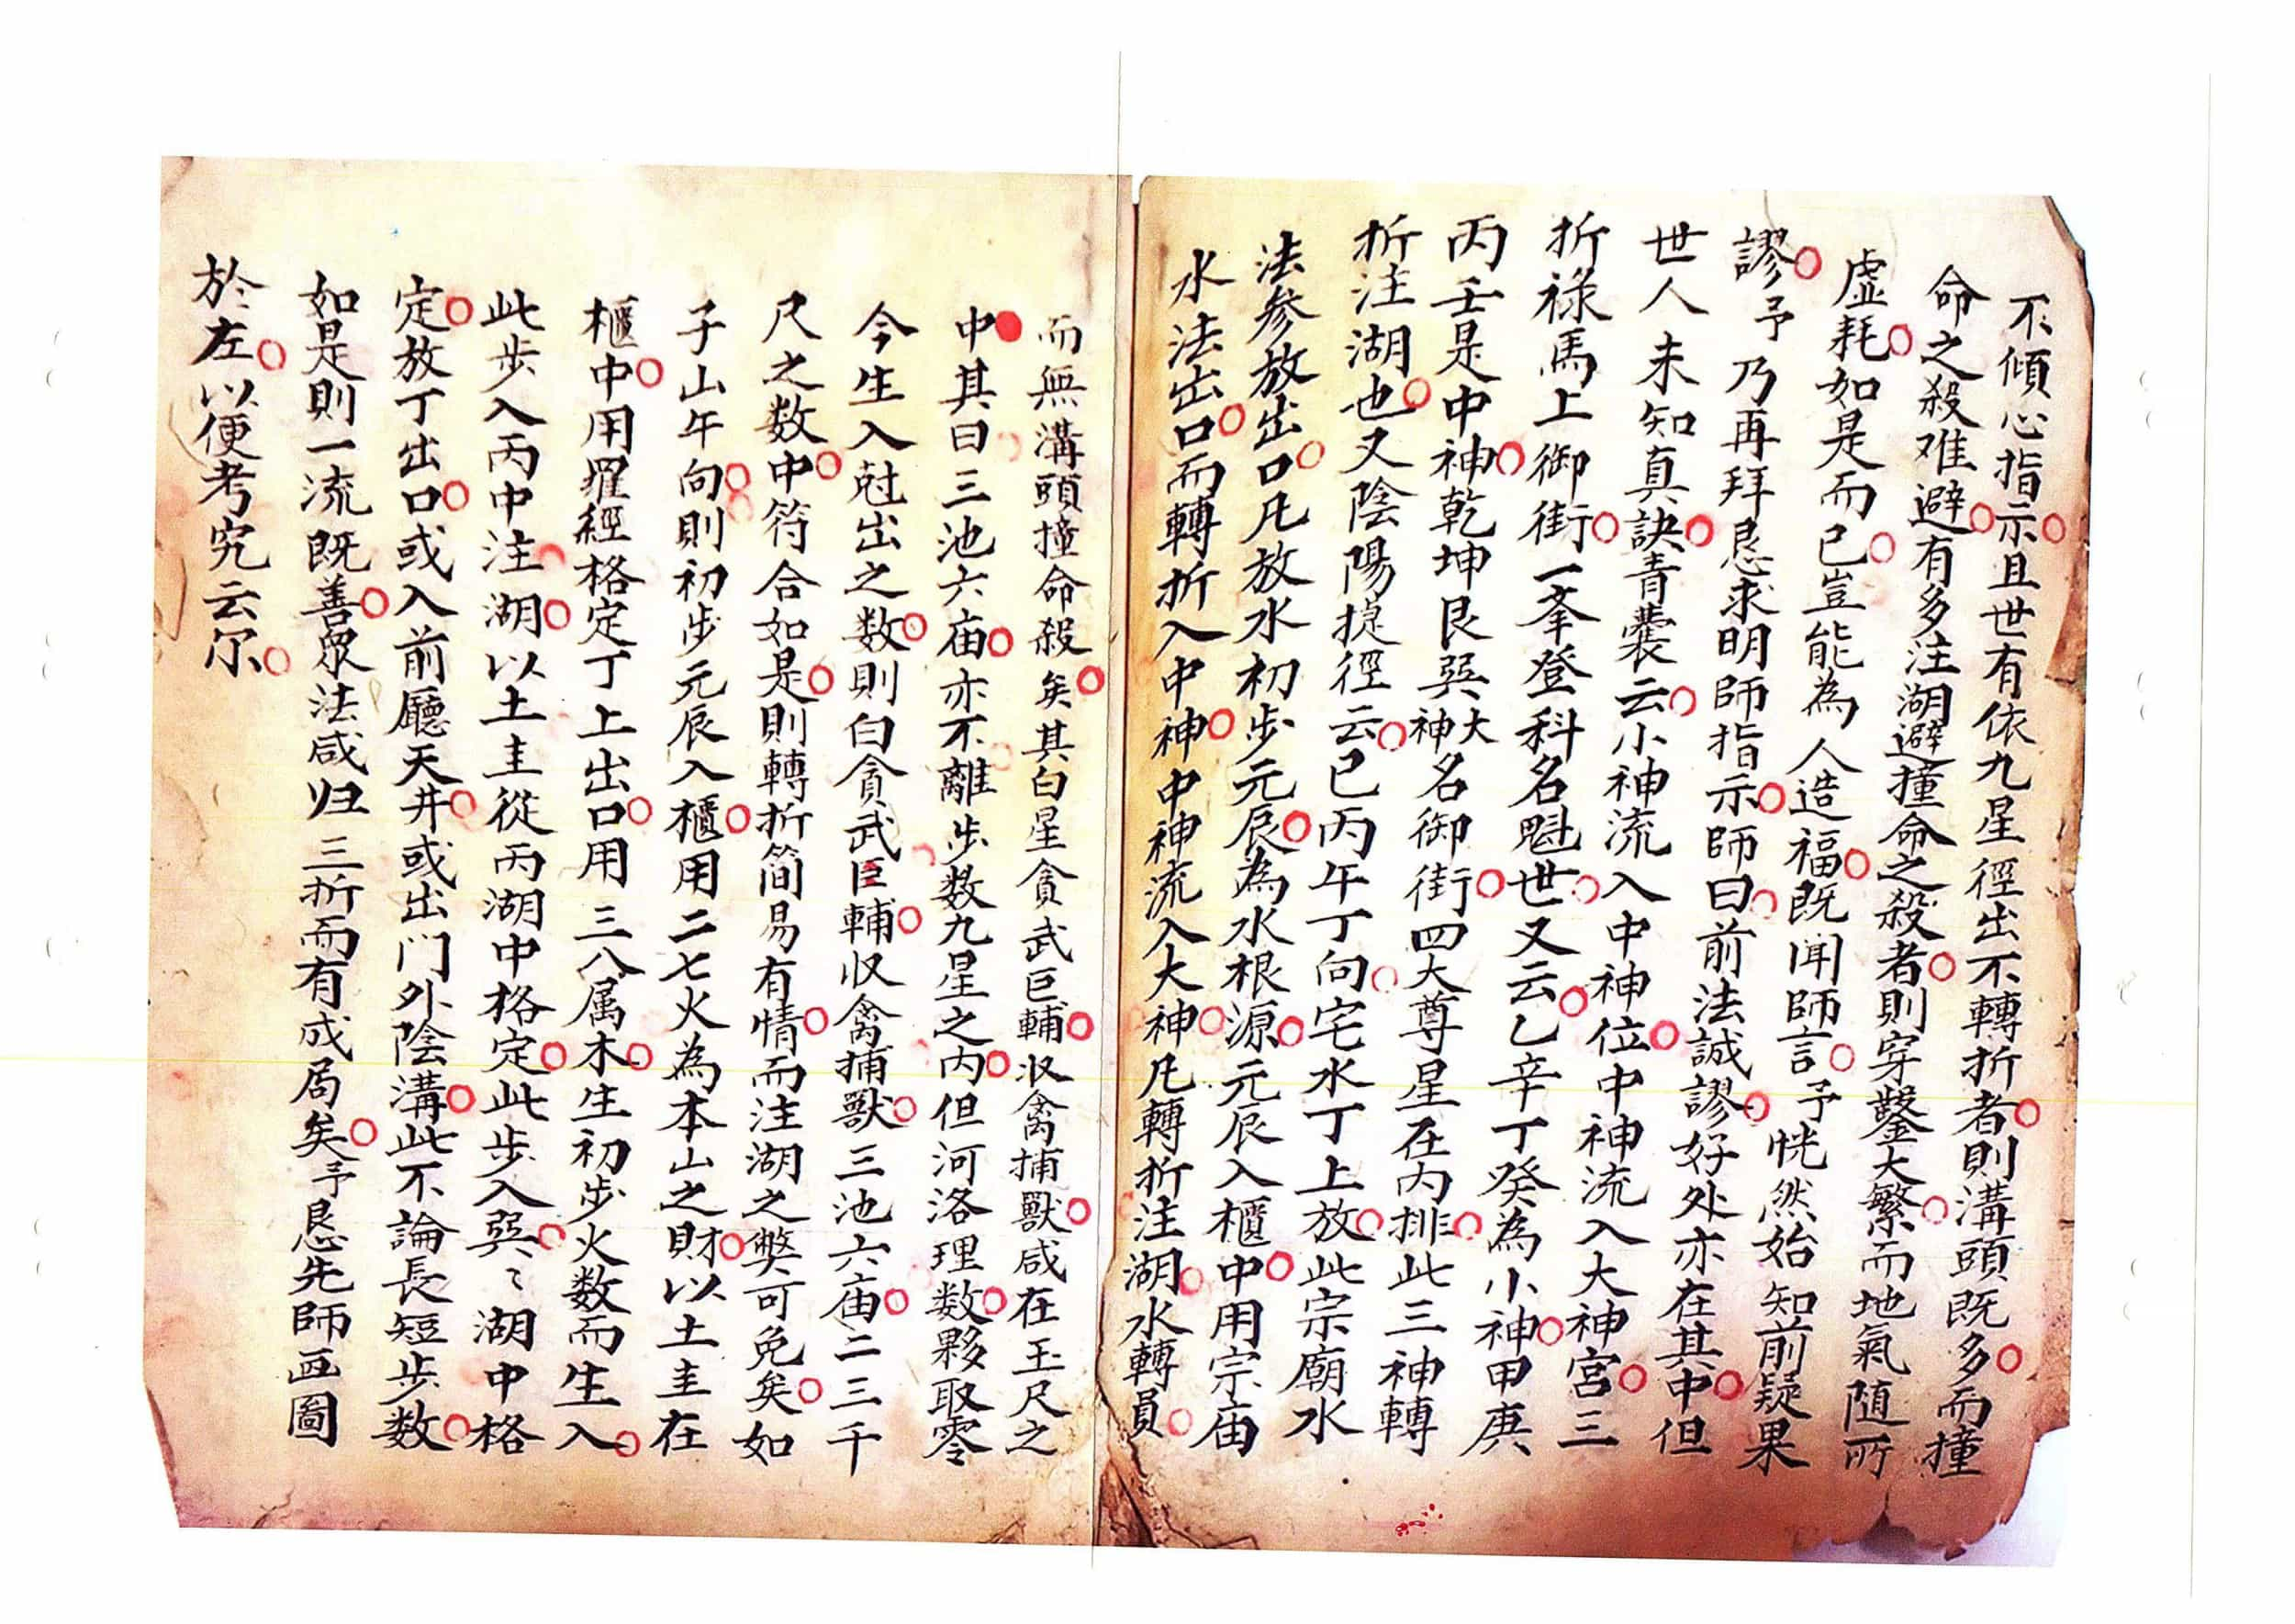 不傾心指示且世有依九星徑出不轉折者則溝頭既多而撞
命之殺难避有多注湖避撞命之殺者則穿鑿大繁而地氣随所
虚耗如是而已豈能為人造福既闻師言予恍然始知前疑果
謬予乃再拜恳求明師指示師曰前法誠謬好处亦在其中但
世人未知真訣青囊云小神流入中神位中神流入大神宮三
折祿馬上御街一峯登科名魁世又云乙辛丁癸為小神甲庚
丙壬是中神乾坤艮巽大神名御街四大尊星在內排此三神轉
折注湖也又陰陽捷徑云巳丙午丁向宅水丁上放此宗廟水
法参放出口凡放水初步元辰為水根源元辰入櫃中用宗庙
水法出口而轉折入中神中神流入大神凡轉折注湖水轉員
而無溝頭撞命殺矣其白星貪武巨輔收禽捕獸咸在玉尺之
中其曰三池六庙亦不離步数九星之內但河洛理数夥取零
今生入尅出之数則白貪武巨輔収禽捕獸三池六庙二三千
尺之数中符合如是則轉折简易有情而注湖之弊可免矣如
子山午向則初步元辰入櫃用二七火為本山之財以土主在
櫃中用羅經格定丁上出口用三八属木生初步火数而生入
此步入丙中注湖以土主從丙湖中格定此步入巽〻湖中格
定放丁出口或入前廳天井或出门外陰溝此不論長短步数
如是則一流既善眾法咸归三折而有成局矣予恳先師画圖
於左以便考究云尔